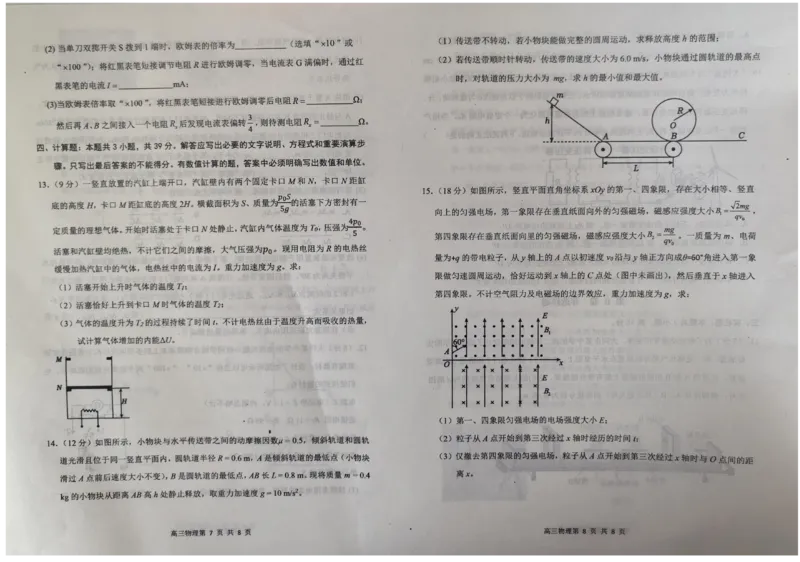 (2) 当单刀双掷开关 S 拨到 1 端时，欧姆表的倍率为____________（选填“×10”或
“×100”）；将红黑表笔短接调节电阻 R 进行欧姆调零，当电流表 G 满偏时，通过红
黑表笔的电流 I = ____________mA；
(3)当欧姆表倍率取“×100”，将红黑表笔短接进行欧姆调零后电阻 R = ____________Ω；
然后再 A、B 之间接入一个电阻 Rx 后发现电流表偏转 3/4，则待测电阻 Rx = ____________Ω。
四、计算题：本题共 3 小题，共 39 分。解答应写出必要的文字说明、方程式和重要演算步
骤。只写出最后答案的不能得分。有数值计算的题，答案中必须明确写出数值和单位。
13.（9 分）一竖直放置的汽缸上端开口，汽缸壁内有两个固定卡口 M 和 N，卡口 N 距缸
底的高度 H，卡口 M 距缸底的高度 2H。横截面积为 S、质量为 p₀S/5g 的活塞下方密封有一
定质量的理想气体。开始时活塞处于卡口 N 处静止，汽缸内气体温度为 T₀，压强为 4p₀/5。
活塞和汽缸壁均绝热，不计它们之间的摩擦，大气压强为p₀。现用电阻为 R 的电热丝
缓慢加热汽缸中的气体，电热丝中的电流为 I。重力加速度为 g。求：
（1）活塞开始上升时气体的温度 T₁；
（2）活塞恰好上升到卡口 M 时气体的温度 T₂；
（3）气体的温度升为 T₂ 的过程持续了时间 t，不计电热丝由于温度升高而吸收的热量，
试计算气体增加的内能ΔU。
M
N
H
14.（12 分）如图所示，小物块与水平传送带之间的动摩擦因数μ = 0.5，倾斜轨道和圆轨
道光滑且位于同一竖直平面内，圆轨道半径 R = 0.6 m，A 是倾斜轨道的最低点（小物块
滑过 A 点前后速度大小不变），B 是圆轨道的最低点，AB 长 L = 0.8 m。现将质量 m = 0.4
kg 的小物块从距离 AB 高 h 处静止释放，取重力加速度 g = 10 m/s²。
高三物理第 7 页 共 8 页
（1）传送带不转动，若小物块能做完整的圆周运动，求释放高度 h 的范围；
（2）若传送带顺时针转动，传送带的速度大小为 6.0 m/s，小物块通过圆轨道的最高点
时，对轨道的压力大小为 mg，求 h 的最小值和最大值。
m
h
R
O
A
B
C
L
15.（18 分）如图所示，竖直平面直角坐标系 xOy 的第一、四象限，存在大小相等、竖直
向上的匀强电场，第一象限存在垂直纸面向外的匀强磁场，磁感应强度大小 B₁ = √2mg/qv₀，
第四象限存在垂直纸面向里的匀强磁场，磁感应强度大小 B₂ = mg/qv₀。一质量为 m、电荷
量为+q 的带电粒子，从 y 轴上的 A 点以初速度 v₀ 沿与 y 轴正方向成θ=60°角进入第一象
限做匀速圆周运动，恰好运动到 x 轴上的 C 点处（图中未画出），然后垂直于 x 轴进入
第四象限，不计空气阻力及电磁场的边界效应，重力加速度为 g，求：
y
E
B₁
60°
A
O
x
E
B₂
（1）第一、四象限匀强电场的电场强度大小 E；
（2）粒子从 A 点开始到第三次经过 x 轴时经历的时间 t；
（3）仅撤去第四象限的匀强电场，粒子从 A 点开始到第三次经过 x 轴时与 O 点间的距
离 x。
高三物理第 8 页 共 8 页